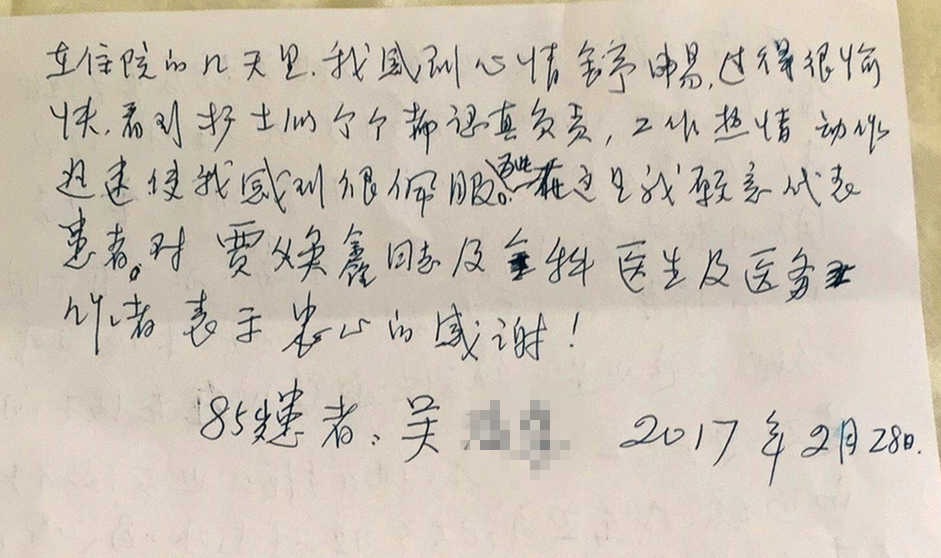 在住院的几天里.我感到心情舒畅,过得很愉
快,看到护士们个个都认真负责,工作热情 动作
迅速使我感到很佩服。在这里我愿意代表
患者。对 贾焕鑫同志及全科 医生及医务工
作者 表于衷心的感谢!
85岁患者:吴 2017年2月28日.